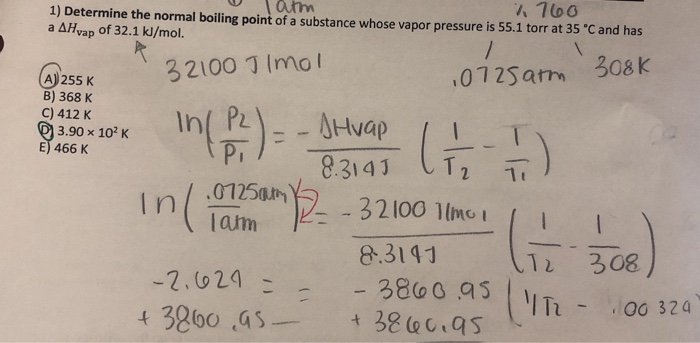 1 atm
÷ 760
1) Determine the normal boiling point of a substance whose vapor pressure is 55.1 torr at 35 °C and has
a ΔHvap of 32.1 kJ/mol.
32100 J/mol
.0725atm
308K
A) 255 K
B) 368 K
C) 412 K
D) 3.90 × 10² K
E) 466 K
ln(P2/P1) = - ΔHvap/8.314J (1/T2 - 1/T1)
ln(.0725atm/1atm) = - 32100 J/mol/8.314J (1/T2 - 1/308)
-2.624 = = - 3860.95 (1/T2 - .00324
+ 3860.95 + 3860.95